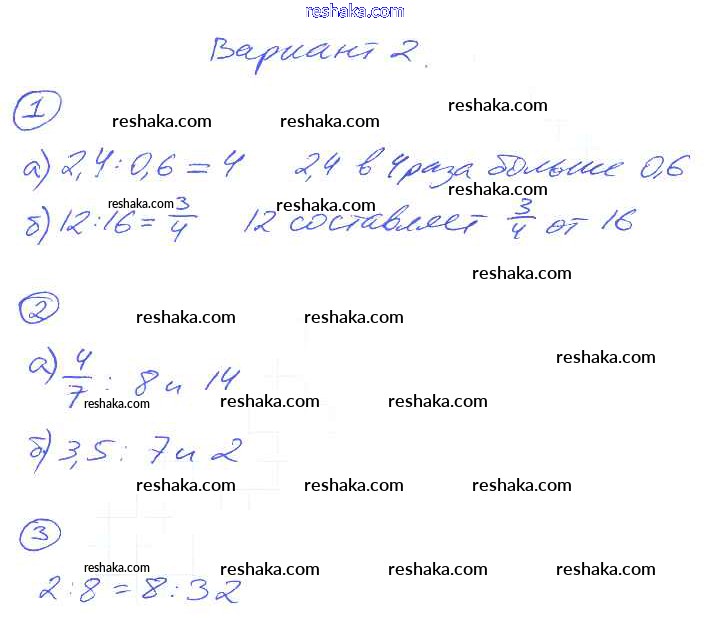 reshaka.com
Вариант 2.
1
reshaka.com reshaka.com reshaka.com
а) 2,4 : 0,6 = 4 2,4 в 4 раза больше 0,6
reshaka.com reshaka.com reshaka.com
б) 12 : 16 = 3/4 12 составляет 3/4 от 16
reshaka.com
2
reshaka.com reshaka.com
reshaka.com
а) 4/7 : 8 и 14
reshaka.com reshaka.com reshaka.com
б) 3,5 : 7 и 2
reshaka.com reshaka.com reshaka.com
3
reshaka.com reshaka.com reshaka.com reshaka.com
2 : 8 = 8 : 32